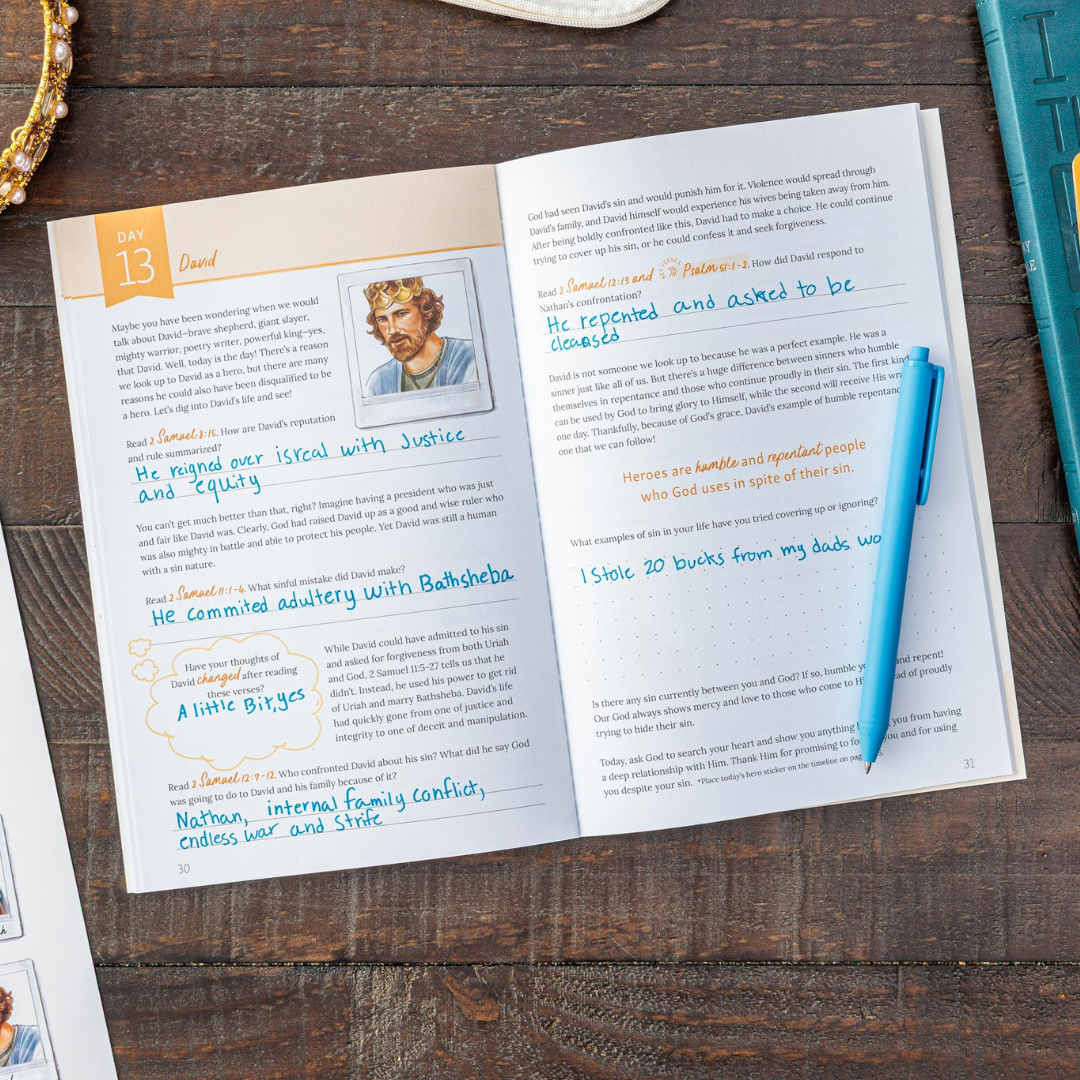 DAY
13
David
Maybe you have been wondering when we would
talk about David—brave shepherd, giant slayer,
mighty warrior, poetry writer, powerful king—yes,
that David. Well, today is the day! There's a reason
we look up to David as a hero, but there are many
reasons he could also have been disqualified to be
a hero. Let's dig into David's life and see!
Read 2 Samuel 8:15. How are David's reputation
and rule summarized?
He reigned over isreal with Justice
and equity
You can't get much better than that, right? Imagine having a president who was just
and fair like David was. Clearly, God had raised David up as a good and wise ruler who
was also mighty in battle and able to protect his people. Yet David was still a human
with a sin nature.
Read 2 Samuel 11:1-4. What sinful mistake did David make?
He commited adultery with Bathsheba
Have your thoughts of
David changed after reading
these verses?
A little Bit, yes
While David could have admitted to his sin
and asked for forgiveness from both Uriah
and God, 2 Samuel 11:5-27 tells us that he
didn't. Instead, he used his power to get rid
of Uriah and marry Bathsheba. David's life
had quickly gone from one of justice and
integrity to one of deceit and manipulation.
Read 2 Samuel 12:7-12. Who confronted David about his sin? What did he say God
was going to do to David and his family because of it?
Nathan, internal family conflict,
endless war and Strife
30
God had seen David's sin and would punish him for it. Violence would spread through
David's family, and David himself would experience his wives being taken away from him.
After being boldly confronted like this, David had to make a choice. He could continue
trying to cover up his sin, or he could confess it and seek forgiveness.
Read 2 Samuel 12:13 and Psalm 51:1-2. How did David respond to
Nathan's confrontation?
He repented and asked to be
cleansed
David is not someone we look up to because he was a perfect example. He was a
sinner just like all of us. But there's a huge difference between sinners who humble
themselves in repentance and those who continue proudly in their sin. The first kind
can be used by God to bring glory to Himself, while the second will receive His
one day. Thankfully, because of God's grace, David's example of humble
one that we can follow!
Heroes are humble and repentant people
who God uses in spite of their sin.
What examples of sin in your life have you tried covering up or ignoring?
I Stole 20 bucks from my dads
Is there any sin currently between you and God? If so, humble and repent!
Our God always shows mercy and love to those who come to of proudly
trying to hide their sin.
Today, ask God to search your heart and show you anything you from having
a deep relationship with Him. Thank Him for promising to you and for using
you despite your sin. *Place today's hero sticker on the timeline on
31